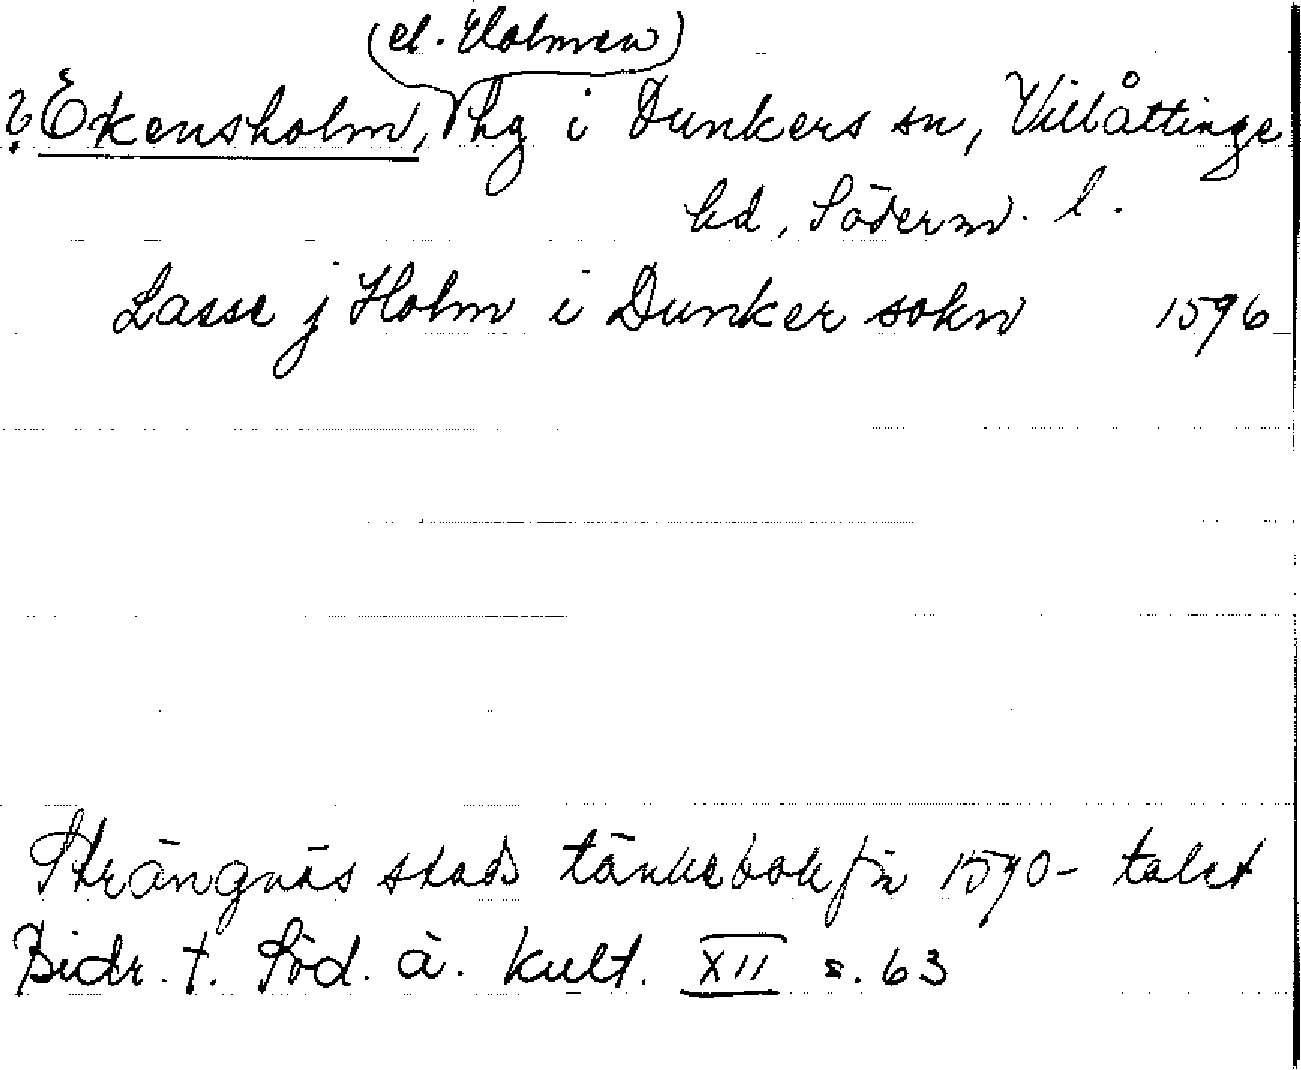 (el. Holmen)
? Ekensholm, hg i Dunkers sn, Villåttinge
hd, Söderm. l.
Lasse j Holm i Dunker sokn 1596
Strängnäs stads tänkebok från 1590-talet
Bidr. t. Söd. ä. kult. XII s. 63